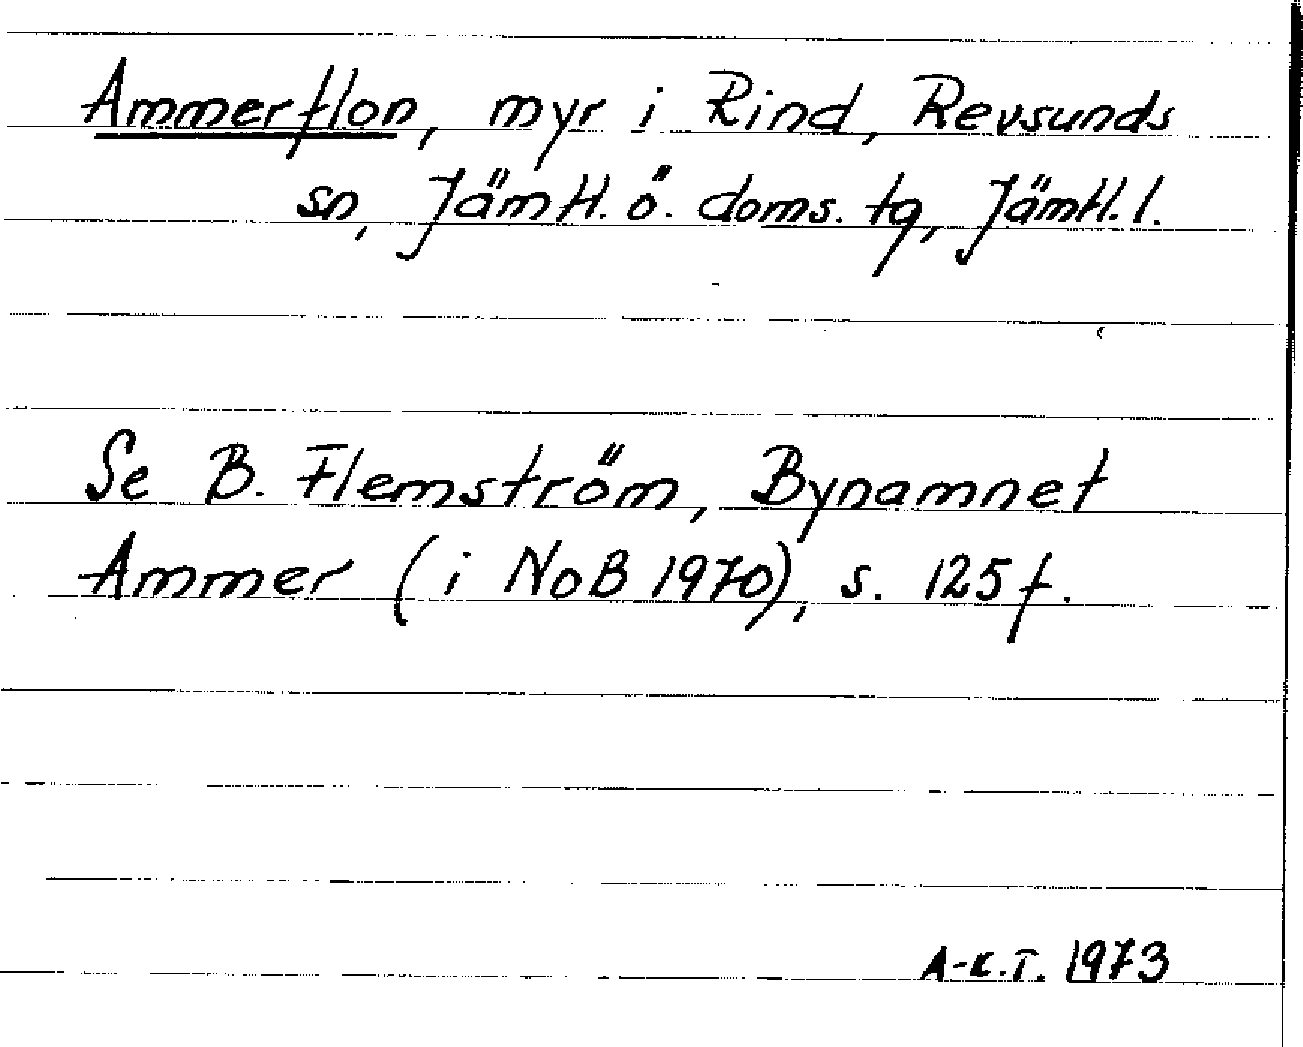 Ammerflon, myr i Rind, Revsunds
sn, Jämtl. ö. doms. tg, Jämtl. l.
Se B. Flemström, Bynamnet
Ammer (i NoB 1970), s. 125 f.
A-K.T. 1973